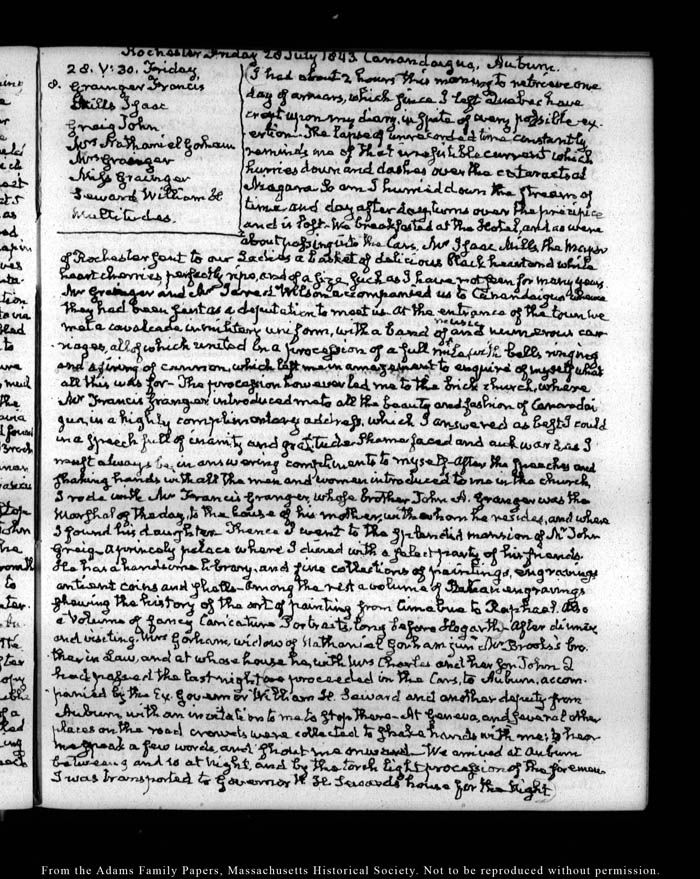 Rochester Friday 28 July 1843. Canandaigua, Auburn.
28. V:30. Friday,
Granger Francis
Mills Isaac
Greig John
Mrs Nathaniel Gorham
Mrs Grainger
Miss Grainger
Seward William H
Multitudes.
I had about 2 hours this morning to retrieve one
day of arrears, which since I left Quebec have
crept upon my diary, in spite of every possible ex-
ertion. The lapse of unrecorded time constantly
reminds me of that irresistible current which
hurries down and dashes over the cataracts of
Niagara. So am I hurried down the stream of
time, and day after day turns over the precipice
and is lost. We breakfasted at the Hotel, and as were
about passing into the Cars, Mr Isaac Mills the Mayor
of Rochester sent to our Ladies a basket of delicious black heart and white
heart cherries perfectly ripe, and of a size such as I have not seen for many years
Mr Grainger and Mr Jared Wilson accompanied us to Canandaigua whence
they had been sent as a deputation to meet us. At the entrance of the town we
met a cavalcade in military uniform, with a band of music and numerous car-
riages, all of which united in a procession of a full mile with bells ringing
and firing of cannon, which left me in amazement to enquire of myself what
all this was for. The procession however led me to the brick church, where
Mr Francis Granger introduced me to all the beauty and fashion of Canandai
gua, in a highly complimentary address, which I answered as best I could
in a speech full of inanity and gratitude. Shamefaced and awkward as I
must always be, in answering compliments to myself. After the speeches and
shaking hands with all the men and women introduced to me in the church
I rode with Mr Francis Granger, whose brother John A. Granger was the
Marshal of the day, to the house of his mother, with whom he resides, and where
I found his daughter. Thence I went to the splendid mansion of Mr John
Greig. A princely palace where I dined with a select party of his friends.
He has a handsome library, and fine collections of paintings, engravings
antient coins and shells. Among the rest a volume of Italian engravings
shewing the history of the art of painting from Cimabue to Raphael. Also
a Volume of fancy Caricature Portraits, long before Hogarth. After dinner
and visiting Mrs Gorham, widow of Nathaniel Gorham junr Mr Brooks's bro-
ther in Law, and at whose house he, with Mrs Charles and her son John Q
had passed the last night we proceeded in the Cars, to Auburn, accom-
panied by the Ex Governor William H. Seward and another deputy from
Auburn with an invitation to me to stop there. At Geneva, and several other
places on the road crowds were collected to shake hands with me, to hear
me speak a few words, and shout me onward. We arrived at Auburn
between 9 and 10 at Night, and by the torch light procession of the firemen
I was transported to Governor W. H. Sewards house for the Night
From the Adams Family Papers, Massachusetts Historical Society. Not to be reproduced without permission.